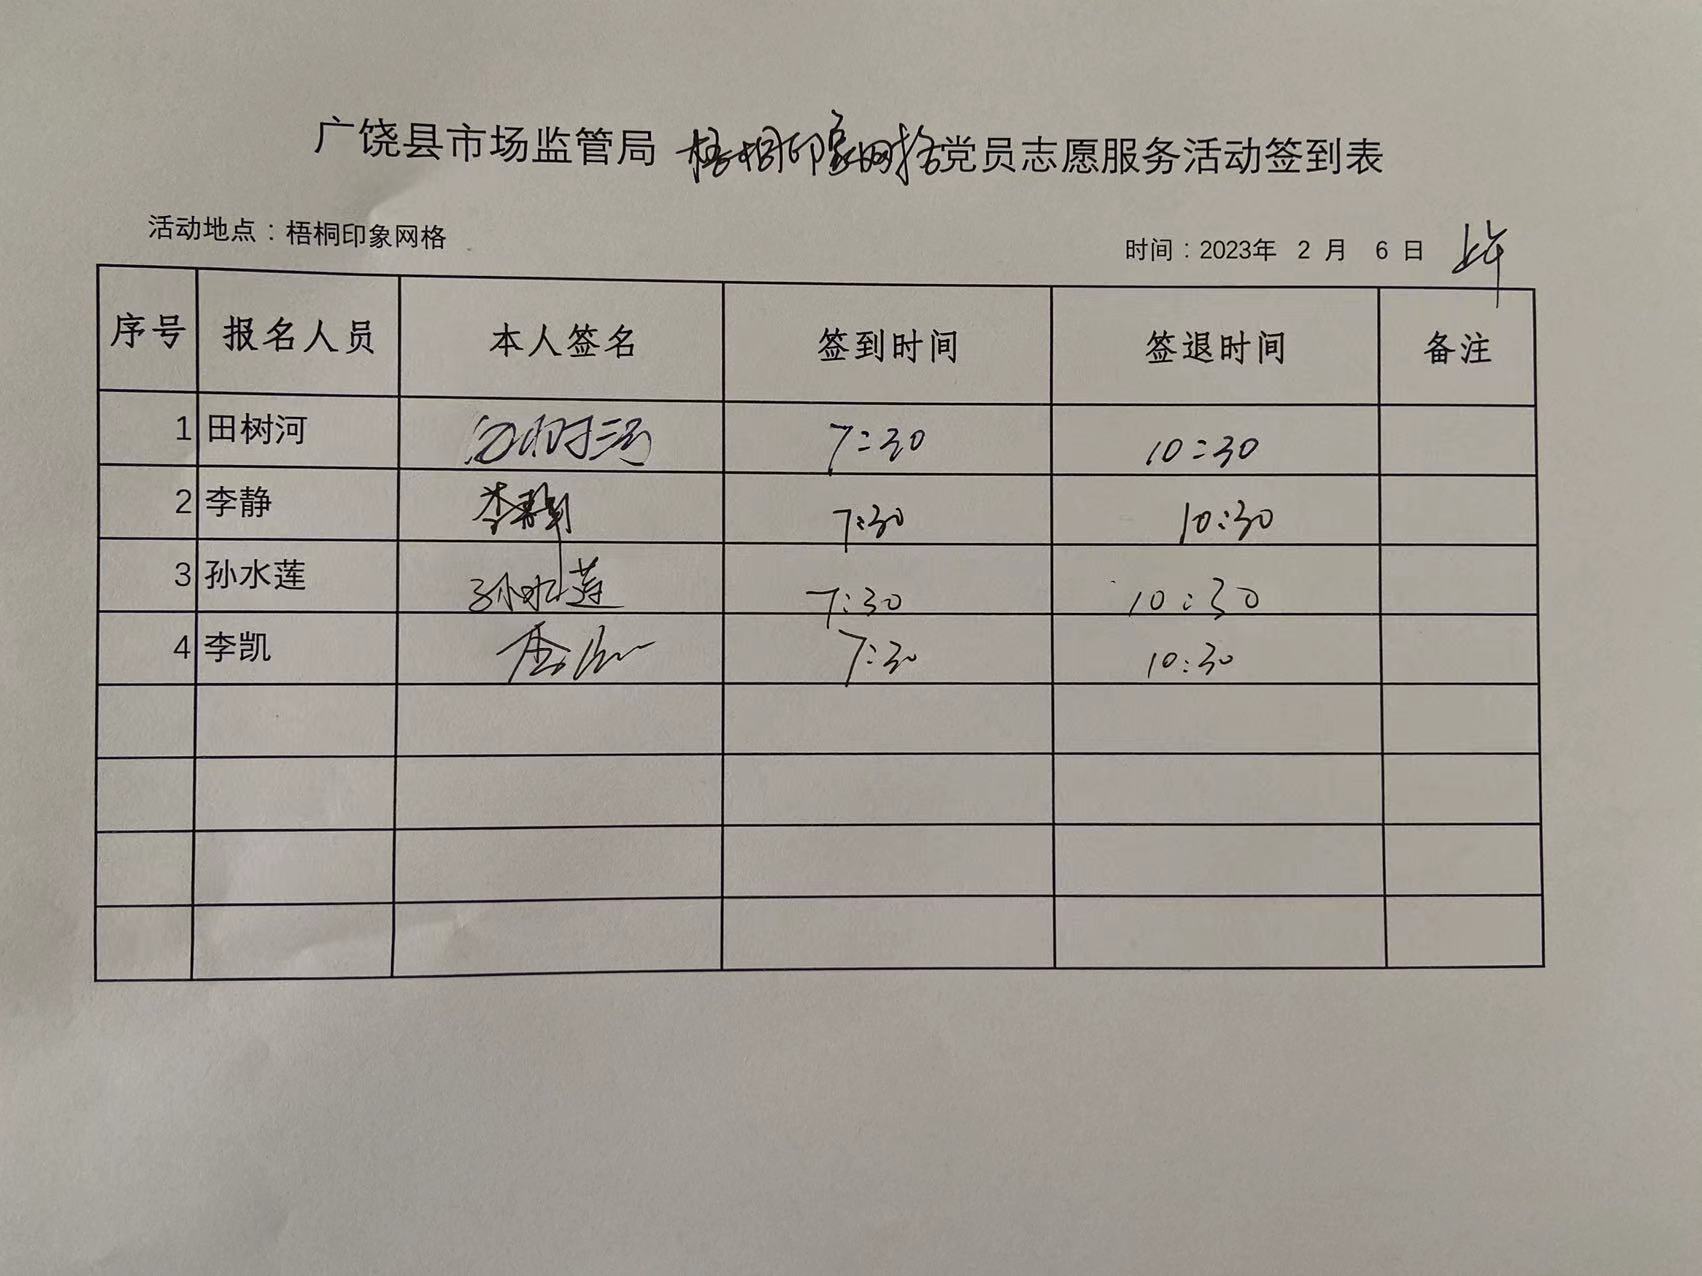 广饶县市场监管局 梧桐印象网格党员志愿服务活动签到表
活动地点：梧桐印象网格
时间：2023年 2 月 6 日 上午
序号 报名人员 本人签名 签到时间 签退时间 备注
1 田树河 田树河 7:30 10:30
2 李静 李静 7:30 10:30
3 孙水莲 孙水莲 7:30 10:30
4 李凯 李凯 7:30 10:30